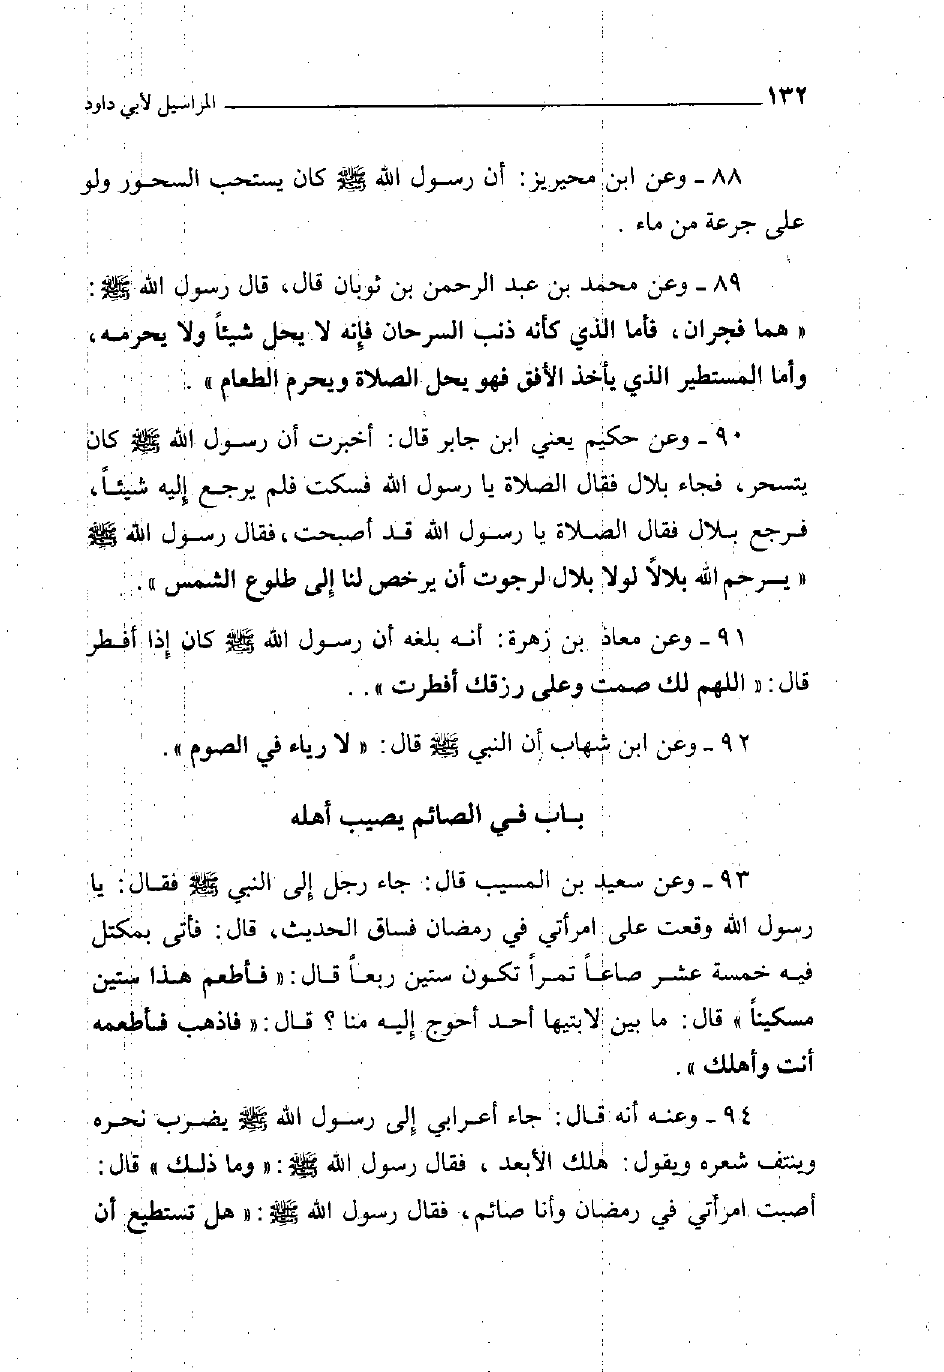 ١٣٢ المراسيل لأبي داود
٨٨ ـ وعن ابن محيريز: أن رسول الله ﷺ كان يستحب السحور ولو
على جرعة من ماء .
٨٩ ـ وعن محمد بن عبد الرحمن بن ثوبان قال، قال رسول الله ﷺ:
« هما فجران، فأما الذي كأنه ذنب السرحان فإنه لا يحل شيئاً ولا يحرمه،
وأما المستطير الذي يأخذ الأفق فهو يحل الصلاة ويحرم الطعام » .
٩٠ ـ وعن حكيم يعني ابن جابر قال: أخبرت أن رسول الله ﷺ كان
يتسحر، فجاء بلال فقال الصلاة يا رسول الله فسكت فلم يرجع إليه شيئاً،
فرجع بلال فقال الصلاة يا رسول الله قد أصبحت، فقال رسول الله ﷺ
« يرحم الله بلالاً لولا بلال لرجوت أن يرخص لنا إلى طلوع الشمس ».
٩١ ـ وعن معاذ بن زهرة: أنه بلغه أن رسول الله ﷺ كان إذا أفطر
قال: « اللهم لك صمت وعلى رزقك أفطرت ». .
٩٢ ـ وعن ابن شهاب أن النبي ﷺ قال: « لا رياء في الصوم ».
باب في الصائم يصيب أهله
٩٣ ـ وعن سعيد بن المسيب قال: جاء رجل إلى النبي ﷺ فقال: يا
رسول الله وقعت على امرأتي في رمضان فساق الحديث، قال: فأتى بمكتل
فيه خمسة عشر صاعاً تمراً تكون ستين ربعاً قال: « فأطعم هذا ستين
مسكيناً » قال: ما بين لابتيها أحد أحوج إليه منا ؟ قال: « فاذهب فأطعمه
أنت وأهلك ».
٩٤ ـ وعنه أنه قال: جاء أعرابي إلى رسول الله ﷺ يضرب نحره
وينتف شعره ويقول: هلك الأبعد ، فقال رسول الله ﷺ: « وما ذلك » قال:
أصبت امرأتي في رمضان وأنا صائم، فقال رسول الله ﷺ: « هل تستطيع أن